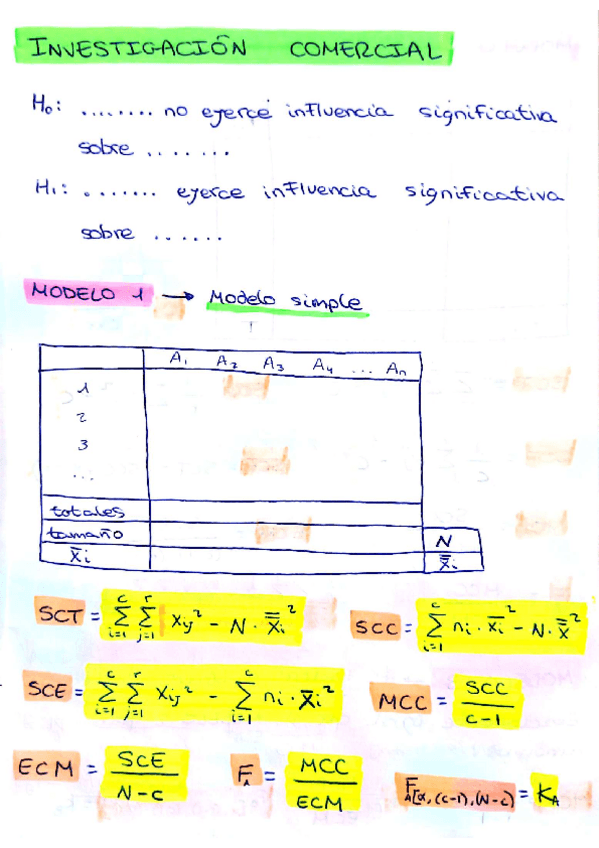 INVESTIGACIÓN COMERCIAL
H₀: ........ no ejerce influencia significativa
sobre .......
H₁: ....... ejerce influencia significativa
sobre ......
MODELO 1 → Modelo simple
A₁ A₂ A₃ A₄ ... An
1
2
3
...
totales
tamaño N
x̄i x̿i
SCT = Σ(i=1)^c Σ(j=1)^r Xij² - N · x̿i²
SCC = Σ(i=1)^c ni · x̄i² - N · x̿²
SCE = Σ(i=1)^c Σ(j=1)^r Xij² - Σ(i=1)^c ni · x̄i²
MCC = SCC / c-1
ECM = SCE / N-c
F_A = MCC / ECM
F_A[α, (c-1), (N-c)] = K_A